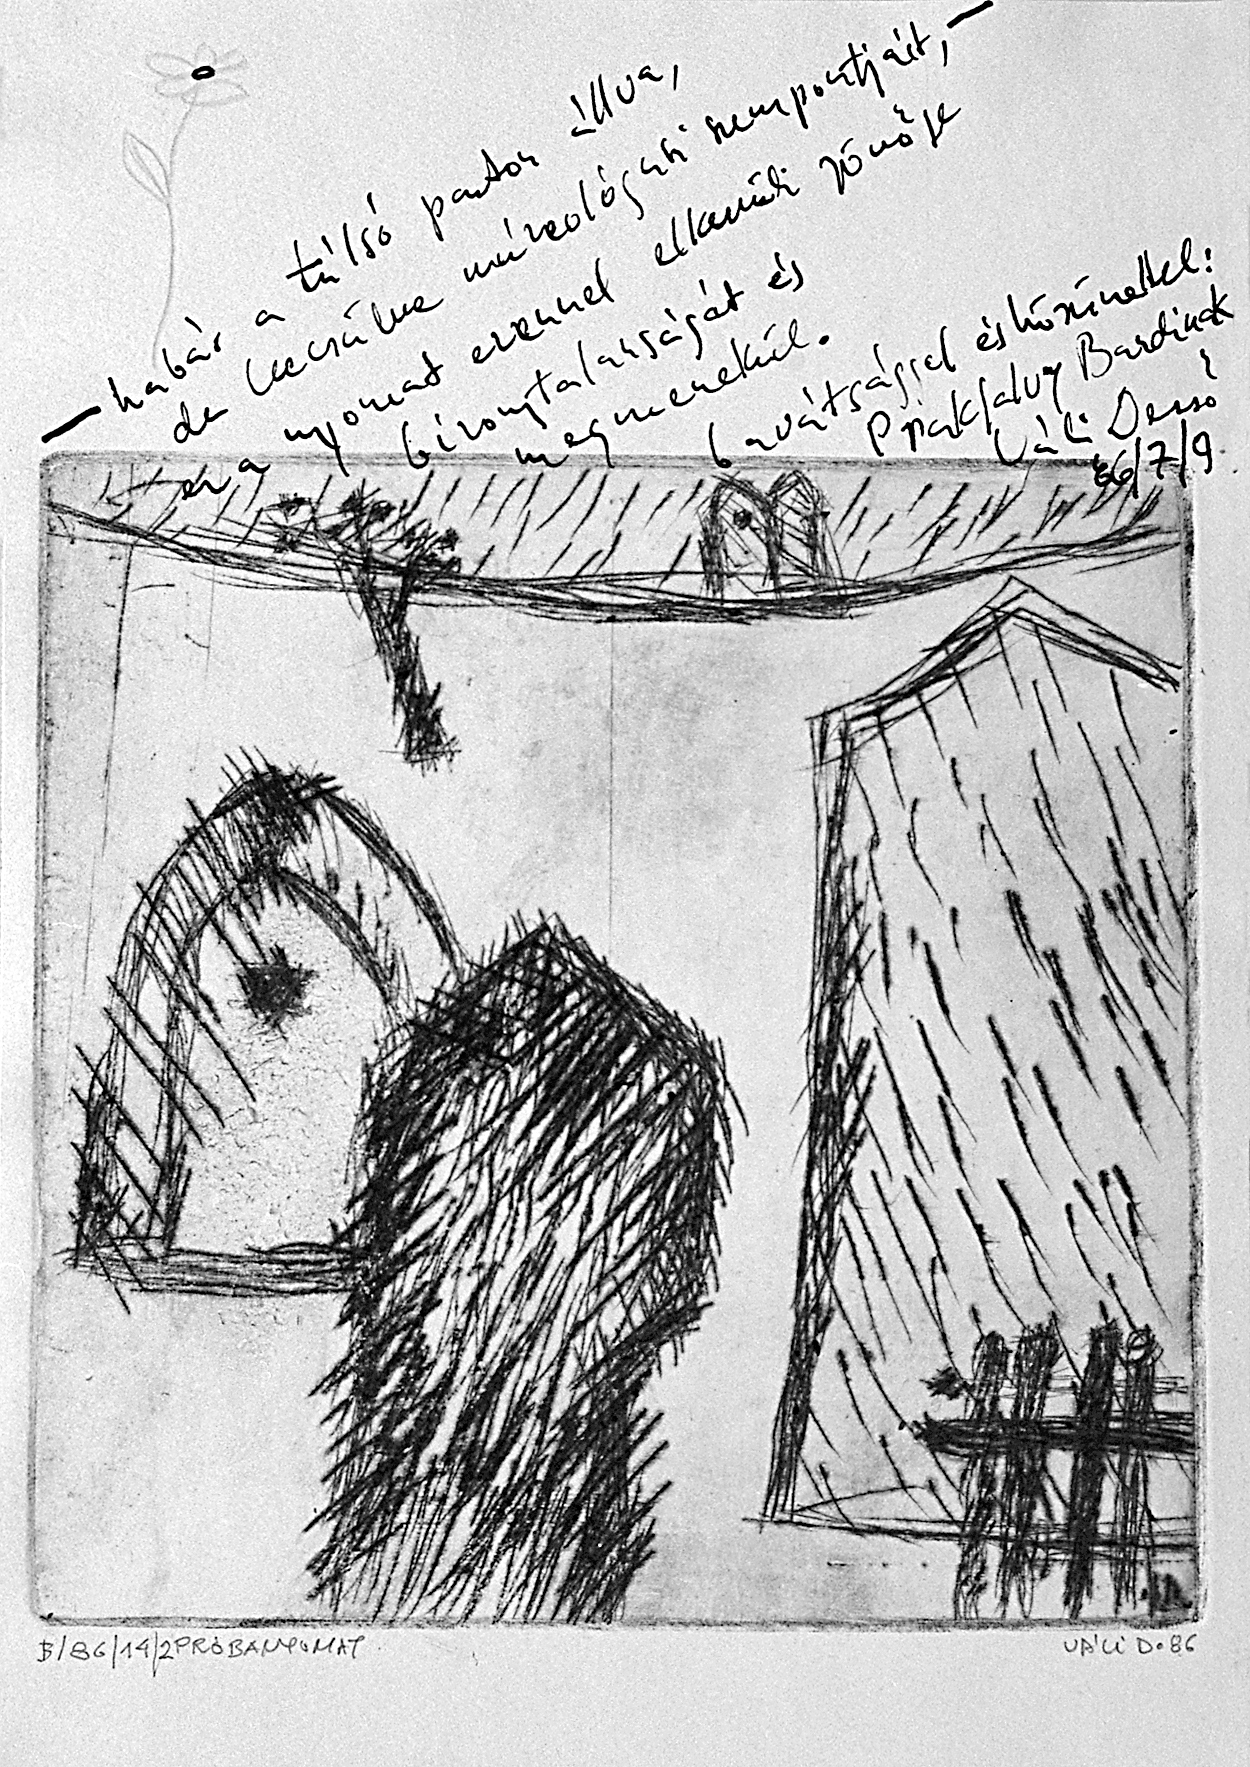 — habár a túlsó parton állva,
de becsülve muzeológusi szempontjait, —
ez a nyomat ezennel elkerüli jövője
bizonytalanságát és
megmenekül.
barátsággal és köszönettel:
P Bardinak
Váli Dezső
86/7/9
B/86/14/2 PRÓBANYOMAT
VÁLI D. 86